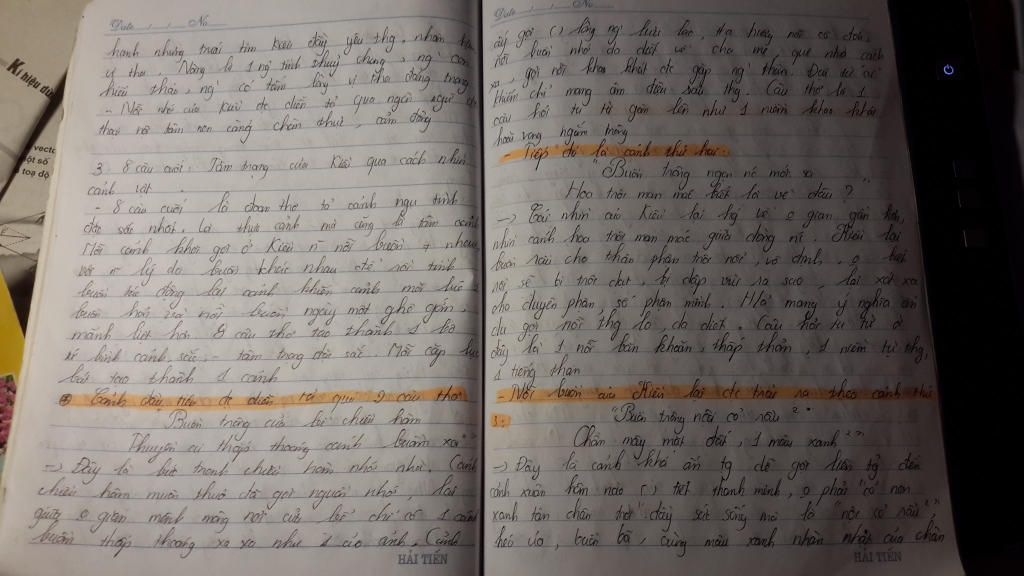 Date / / No
hạnh nhưng trái tim Kiều đầy yêu thg, nhân hậu
vị tha. Nàng là 1 ng` tình thuỷ chung, ng` con
hiếu thảo, ng` có tấm lòng vị tha đáng trọng
- Nỗi nhớ của Kiều đc diễn tả qua ngôn ngữ độc
thoại nội tâm nên càng chân thực, cảm động
3. 8 câu cuối: Tâm trạng của Kiều qua cách nhìn
cảnh vật
- 8 câu cuối là đoạn thơ tả cảnh ngụ tình
đặc sắc nhất. Là thực cảnh mà cũng là tâm cảnh
Mỗi cảnh khơi gợi ở Kiều n~ nỗi buồn # nhau
với n~ lý do buồn khác nhau để rồi tình
buồn tác động lại cảnh khiến cảnh mỗi lúc 1
buồn hơn và nỗi buồn ngày một ghê gớm,
mãnh liệt hơn. 8 câu thơ tạo thành 1 bộ
tứ bình cảnh sắc - tâm trạng đặc sắc. Mỗi cặp lục
bát tạo thành 1 cảnh
Cảnh đầu tiên đc diễn tả qua 2 câu thơ
"Buồn trông cửa bể chiều hôm
Thuyền ai thấp thoáng cánh buồm xa"
-> Đây là bức tranh chiều hôm nhớ nhà. Cảnh
chiều hôm muôn thuở đã gợi nguồn nhớ, lại
giữa 0 gian mênh mông nơi cửa bể chỉ có 1 cánh
buồm thấp thoáng xa xa như 1 ảo ảnh. Cảnh
HẢI TIẾN
Date / / No
ấy gợi () lòng ng` lưu lạc, tha hương nỗi cô đơn,
nỗi buồn nhớ da diết về cha mẹ, quê nhà cách
xa, gợi nỗi khao khát đc gặp ng` thân. Đại từ "ai"
khiến chi mang âm điệu sầu thg. Câu thơ là 1
câu hỏi tu từ gán lên như 1 niềm khao khát
hoài vọng ngậm trông
- Tiếp đó là cảnh thứ hai:
"Buồn trông ngọn nc mới sa
Hoa trôi man mác biết là về đâu?"
-> Cái nhìn của Kiều lại hg về 0 gian gần hơn,
nhìn cánh hoa trôi man mác giữa dòng nc. Kiều lại
buồn sầu cho thân phận trôi nổi, vô định, 0 biết
rồi sẽ bị trôi dạt, bị dập vùi ra sao, lại xót xa
cho duyên phận, số phận mình. H/a mang ý nghĩa ẩn
dụ gợi nỗi thg lo, da diết. Câu hỏi tu từ ở
đây là 1 nỗi băn khoăn, thấp thỏm, 1 niềm tự thg,
1 tiếng than
- Nỗi buồn của Kiều lại đc trải ra theo cảnh thứ
3:
"Buồn trông nội cỏ rầu
Chân mây mặt đất, 1 màu xanh"
-> Đây là cảnh khá ấn tg dễ gợi liên tg đến
cảnh xuân hôm nào () tiết thanh minh, 0 phải "cỏ non
xanh tận chân trời" đầy sức sống mà là "nội cỏ rầu"
héo úa, buồn bã, cùng màu xanh nhàn nhạt của chân
HẢI TIẾN
Kí hiệu
vectơ
một số
toạ độ